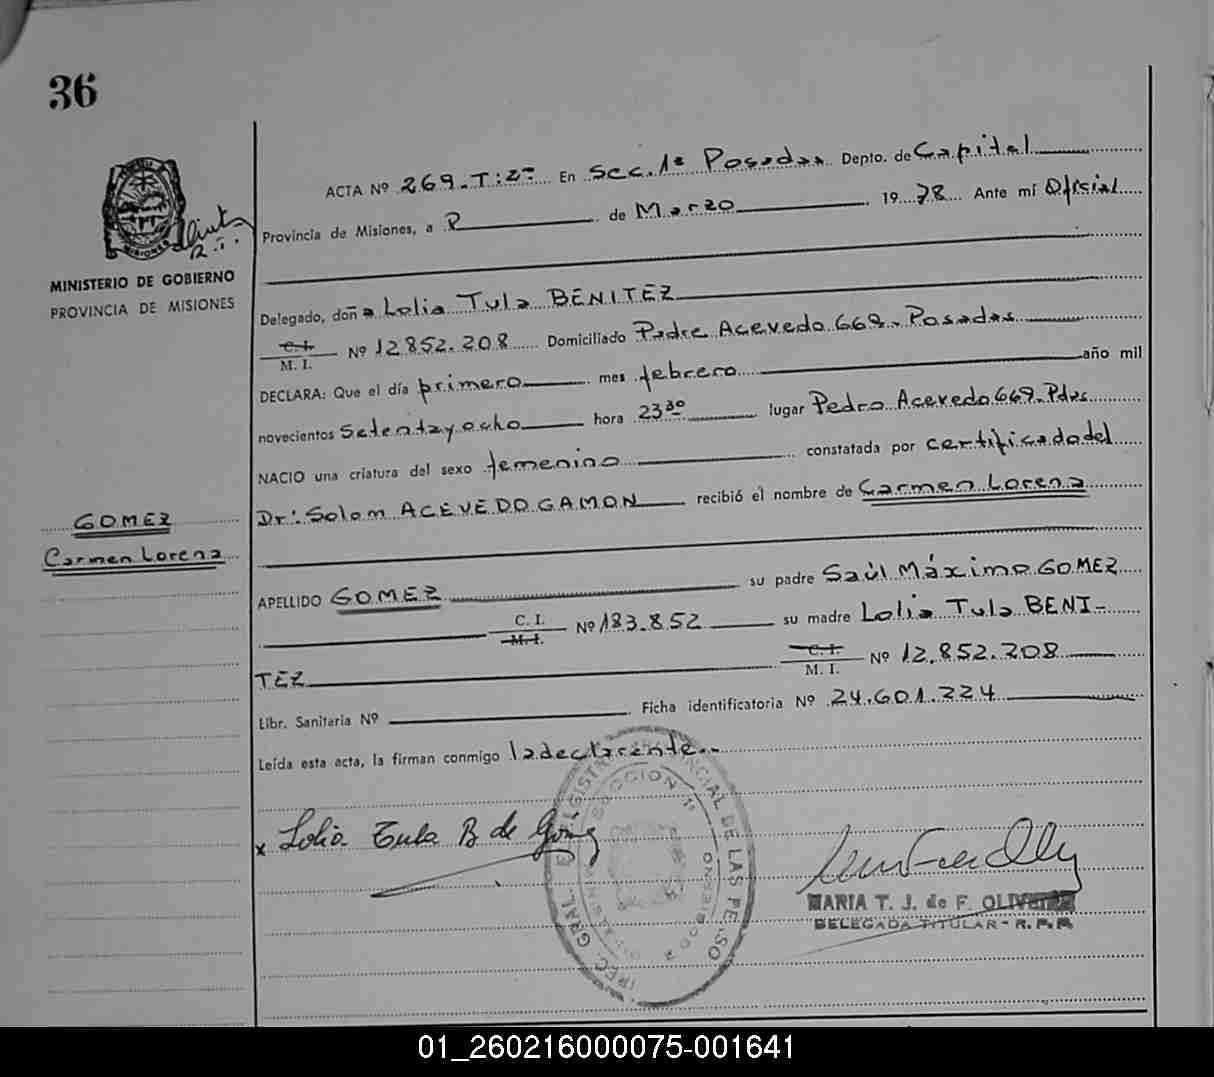 36
ACTA Nº 269.T:2º En Sec. 1ª Posadas Depto. de Capital
Provincia de Misiones, a 2 de Marzo 19 78 Ante mí Oficial
MINISTERIO DE GOBIERNO
PROVINCIA DE MISIONES
MISIONES
Delegado, doña Lolia Tula BENITEZ
C.I.
M. I. Nº 12852.208 Domiciliado Padre Acevedo 669. Posadas
DECLARA: Que el día primero mes febrero año mil
novecientos setentayocho hora 23 30 lugar Pedro Acevedo 669. Pdas
NACIO una criatura del sexo femenino constatada por certificado del
Dr: Solom ACEVEDO GAMON recibió el nombre de Carmen Lorena
GOMEZ
Carmen Lorena
APELLIDO GOMEZ su padre Saúl Máximo GOMEZ
C. I.
M.I. Nº 183.852 su madre Lolia Tula BENI-
TEZ C.I.
M. I. Nº 12.852.208
Libr. Sanitaria Nº Ficha identificatoria Nº 24.601.224
Leída esta acta, la firman conmigo la declarante.
x Lolia Tula B de Gómez
SECCION 1ª
GRAL. REGISTRO PROVINCIAL DE LAS PERSO
GOBIERNO
MARIA T. J. de F. OLIVERIA
DELEGADA TITULAR - R.P.P.
01_260216000075-001641